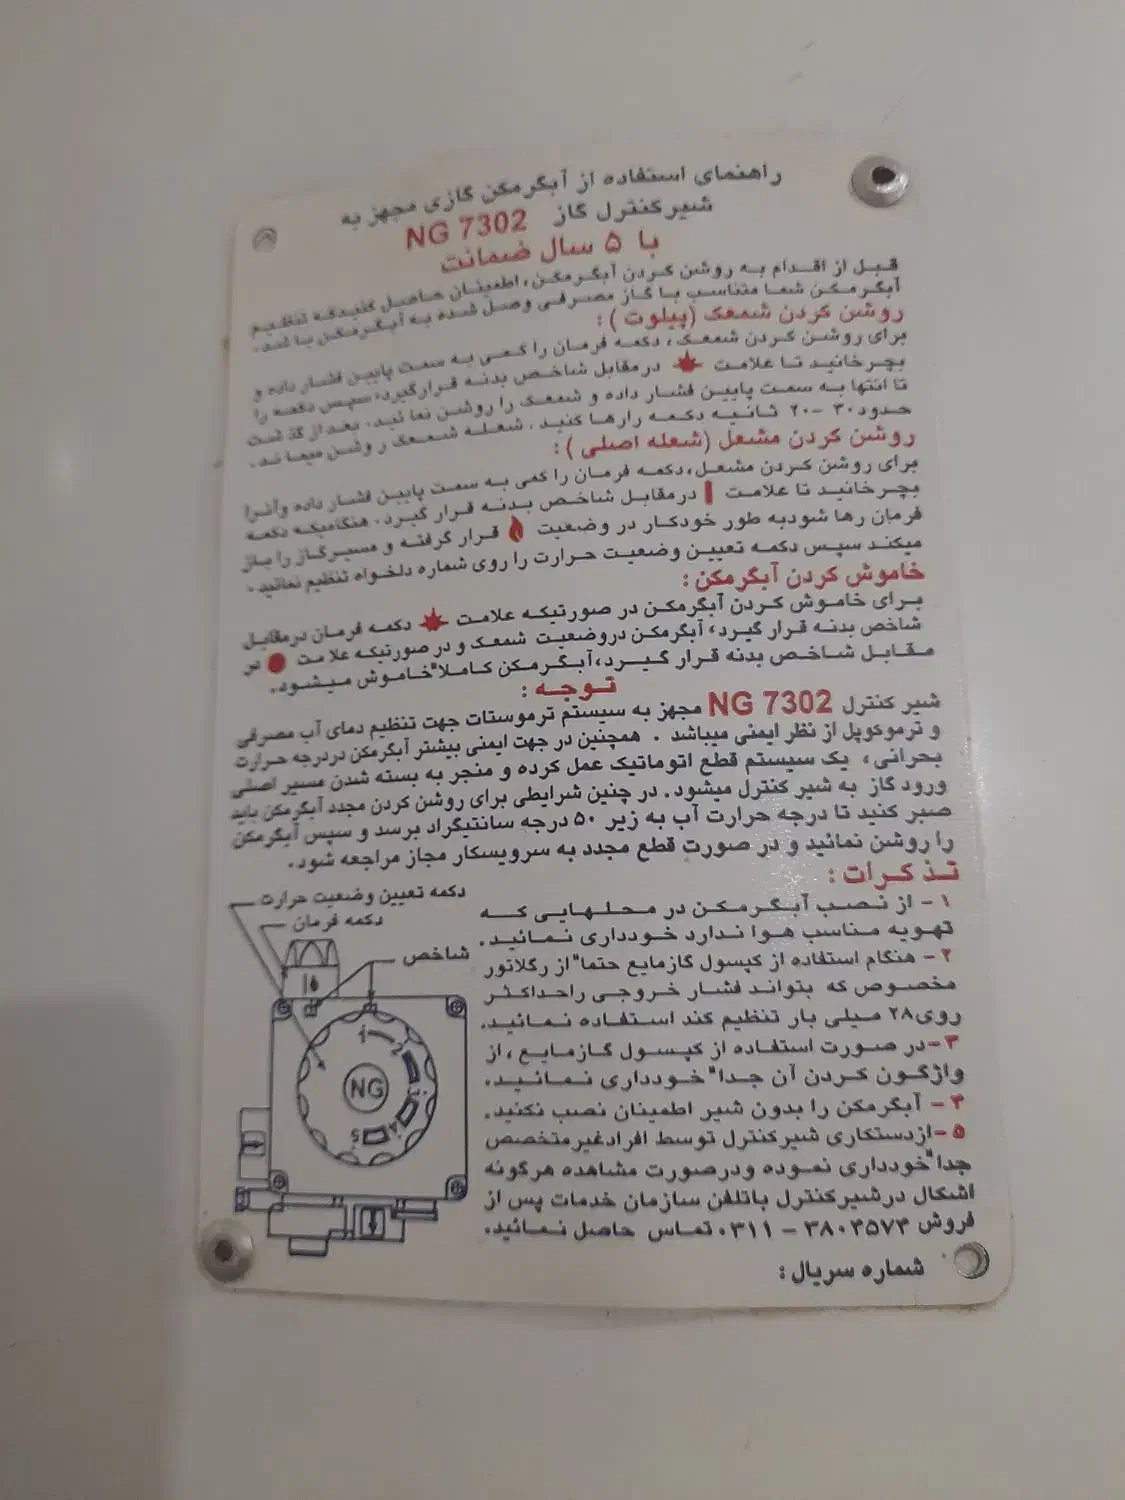 راهنمای استفاده از آبگرمکن گازی مجهز به
شیرکنترل گاز NG 7302
با ۵ سال ضمانت
قبل از اقدام به روشن کردن آبگرمکن، اطمینان حاصل کنیدکه تنظیم
آبگرمکن شما متناسب با گاز مصرفی وصل شده به آبگرمکن باشد.
روشن کردن شمعک (پیلوت) :
برای روشن کردن شمعک، دکمه فرمان را کمی به سمت پایین فشار داده و
بچرخانید تا علامت درمقابل شاخص بدنه قرارگیرد، سپس دکمه را
تا انتها به سمت پایین فشار داده و شمعک را روشن نمائید. بعد از گذشت
حدود ۳۰ -۲۰ ثانیه دکمه را رها کنید. شعله شمعک روشن میماند.
روشن کردن مشعل (شعله اصلی) :
برای روشن کردن مشعل،دکمه فرمان را کمی به سمت پایین فشار داده وآنرا
بچرخانید تا علامت درمقابل شاخص بدنه قرار گیرد. هنگامیکه دکمه
فرمان رها شودبه طور خودکار در وضعیت قرار گرفته و مسیرگاز را باز
میکند سپس دکمه تعیین وضعیت حرارت را روی شماره دلخواه تنظیم نمائید.
خاموش کردن آبگرمکن :
برای خاموش کردن آبگرمکن در صورتیکه علامت دکمه فرمان درمقابل
شاخص بدنه قرار گیرد، آبگرمکن دروضعیت شمعک و در صورتیکه علامت در
مقابل شاخص بدنه قرار گیرد،آبگرمکن کاملا"خاموش میشود.
توجه :
شیر کنترل NG 7302 مجهز به سیستم ترموستات جهت تنظیم دمای آب مصرفی
و ترموکوپل از نظر ایمنی میباشد . همچنین در جهت ایمنی بیشتر آبگرمکن دردرجه حرارت
بحرانی، یک سیستم قطع اتوماتیک عمل کرده و منجر به بسته شدن مسیر اصلی
ورود گاز به شیر کنترل میشود. در چنین شرایطی برای روشن کردن مجدد آبگرمکن باید
صبر کنید تا درجه حرارت آب به زیر ۵۰ درجه سانتیگراد برسد و سپس آبگرمکن
را روشن نمائید و در صورت قطع مجدد به سرویسکار مجاز مراجعه شود.
تذکرات :
۱ - از نصب آبگرمکن در محلهایی که
تهویه مناسب هوا ندارد خودداری نمائید.
۲ - هنگام استفاده از کپسول گازمایع حتما"از رگلاتور
مخصوص که بتواند فشار خروجی راحداکثر
روی۲۸ میلی بار تنظیم کند استفاده نمائید.
۳ -در صورت استفاده از کپسول گازمایع ،از
واژگون کردن آن جدا"خودداری نمائید.
۴ - آبگرمکن را بدون شیر اطمینان نصب نکنید.
۵ -ازدستکاری شیرکنترل توسط افرادغیرمتخصص
جدا"خودداری نموده ودرصورت مشاهده هرگونه
اشکال درشیرکنترل باتلفن سازمان خدمات پس از
فروش ۳۸۰۴۵۷۴ - ۰۳۱۱ تماس حاصل نمائید.
شماره سریال :
دکمه تعیین وضعیت حرارت
دکمه فرمان
شاخص
NG